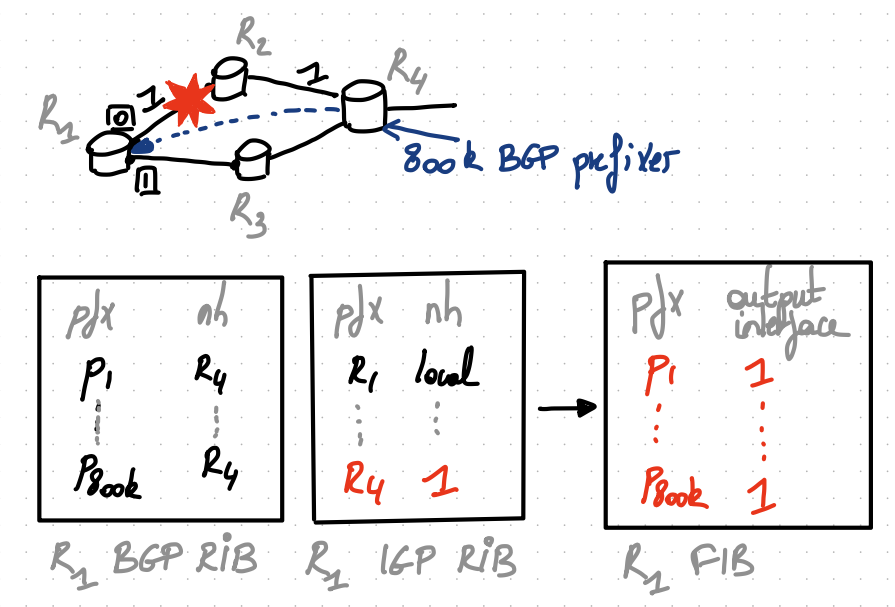 R2
R4
1
1
0
R1
800k BGP prefixes
1
R3
pfx nh
P1 R4
P800k R4
R1 BGP RIB
pfx nh
R1 local
R4 1
R1 IGP RIB
pfx output interface
P1 1
P800k 1
R1 FIB